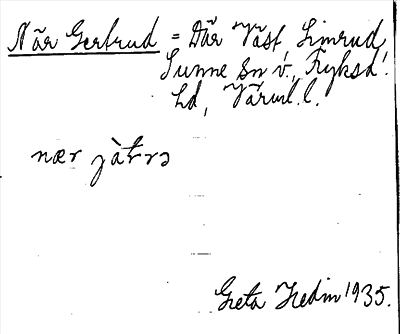 När Gertrud = Där Väst, Limrud,
Sunne sn v., Fryksd.
hd, Värml. l.
nær jà̀t‌rɔ
Greta Hedin 1935.